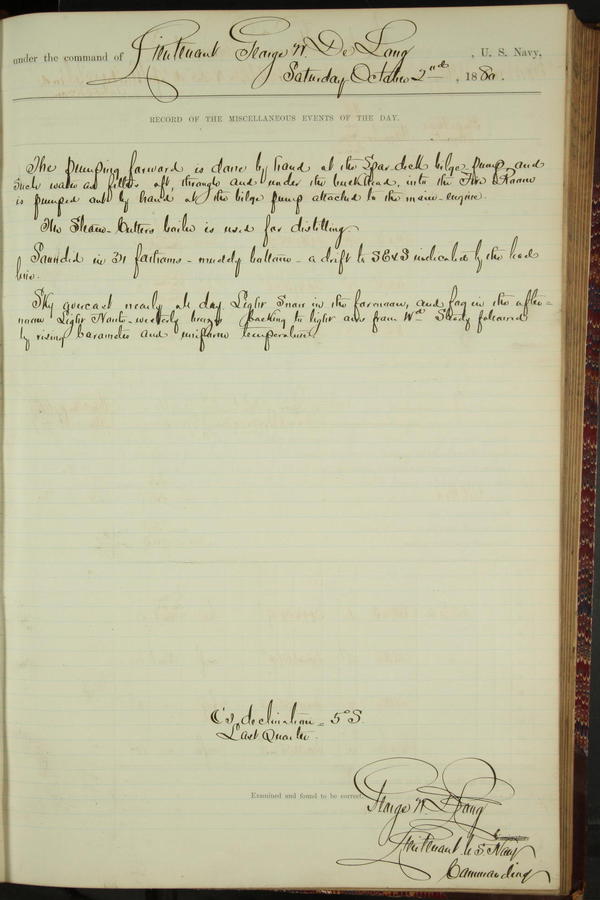 under the command of Lieutenant George W. De Long, U. S. Navy,
Saturday October 2nd, 1880.
RECORD OF THE MISCELLANEOUS EVENTS OF THE DAY.
The pumping forward is done by hand at the Spar deck bilge pump, and
such water as filters aft through and under the bulkhead, into the Fire Room
is pumped out by hand at the bilge pump attached to the main-engine.
The Steam-Cutters boiler is used for distilling
Sounded in 31 fathoms - muddy bottom - a drift to SE&S indicated by the lead
line.
Sky overcast nearly all day. Light Snow in the forenoon, and fog in the after=
noon. Light North-westerly breezes backing to light airs from Wd. Steady followed
by rising barometer and uniform temperature
☾'s declination = 5° S.
Last Quarter.
Examined and found to be correct.
George W. De Long
Lieutenant U S Navy
Commanding